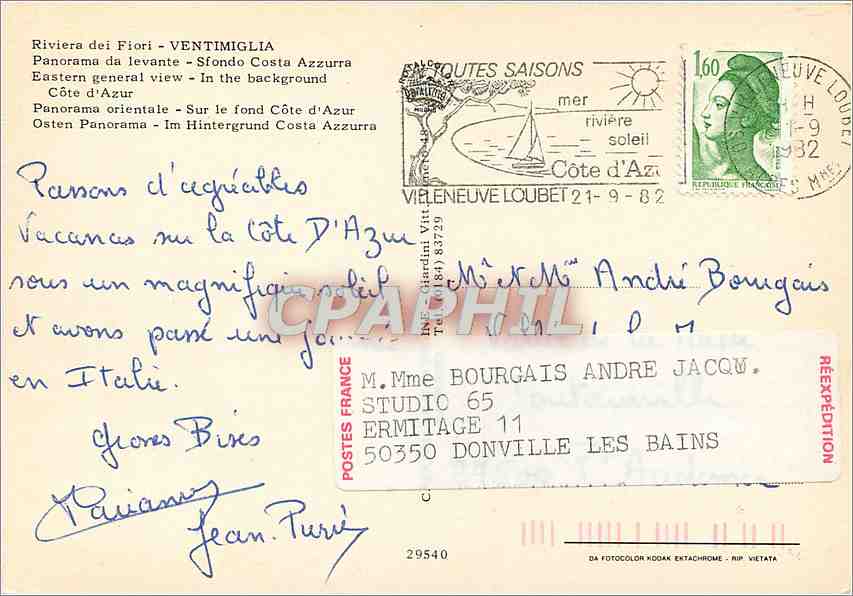 Riviera dei Fiori - VENTIMIGLIA
Panorama da levante - Sfondo Costa Azzurra
Eastern general view - In the background
Côte d'Azur
Panorama orientale - Sur le fond Côte d'Azur
Osten Panorama - Im Hintergrund Costa Azzurra
TOUTES SAISONS
mer
rivière
soleil
Côte d'Azu
VILLENEUVE LOUBET 21-9-82
1,60
REPUBLIQUE FRANÇAISE
NEUVE LOUBET
H
21-9
1982
Mmes
Passons d'agréables
Vacances sur la Côte D'Azur
sous un magnifique soleil
et avons passé une
en Italie.
Grosses Bises
Jean.
Mr et Mme André Bourgais
INE. Giardini Vitt.
Tel. (0184) 83729
CPAPHIL
POSTES FRANCE
M.Mme BOURGAIS ANDRE JACQW.
STUDIO 65
ERMITAGE 11
50350 DONVILLE LES BAINS
RÉEXPÉDITION
29540
DA FOTOCOLOR KODAK EKTACHROME - RIP. VIETATA